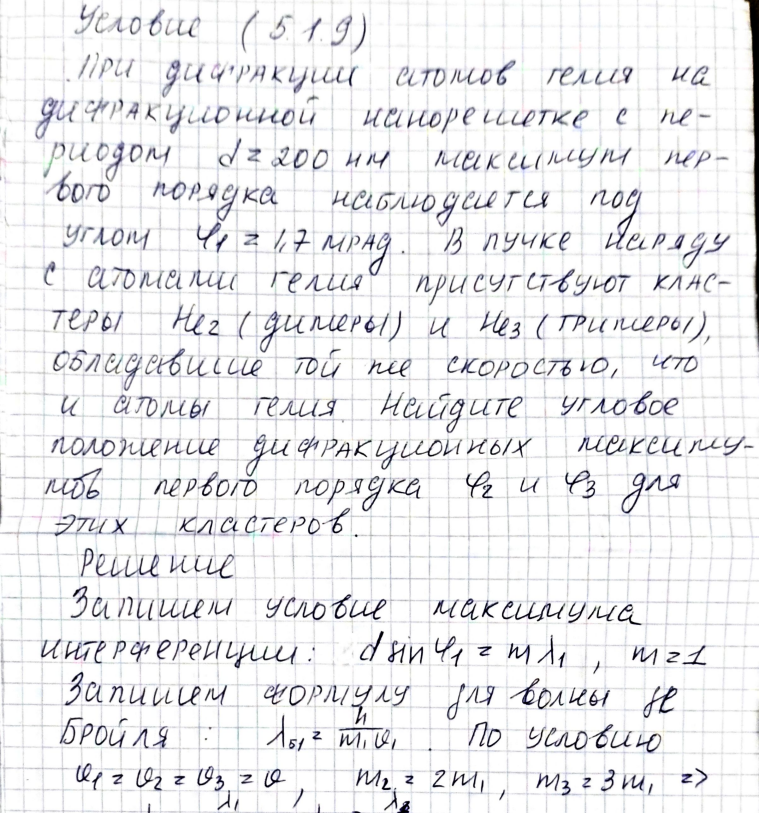 Условие (5.1.9)
При дифракции атомов гелия на
дифракционной нанорешетке с пе-
риодом d = 200 нм максимум пер-
вого порядка наблюдается под
углом φ₁ = 1,7 мрад. В пучке наряду
с атомами гелия присутствуют клас-
теры He₂ (димеры) и He₃ (тримеры),
обладавшие той же скоростью, что
и атомы гелия. Найдите угловое
положение дифракционных максиму-
мов первого порядка φ₂ и φ₃ для
этих кластеров.
Решение
Запишем условие максимума
интерференции: d sin φ₁ = m λ₁, m = 1
Запишем формулу для волны де
Бройля: λб₁ = h/m₁υ₁. По условию
υ₁ = υ₂ = υ₃ = υ, m₂ = 2m₁, m₃ = 3m₁ =>
λ₁ λ₂